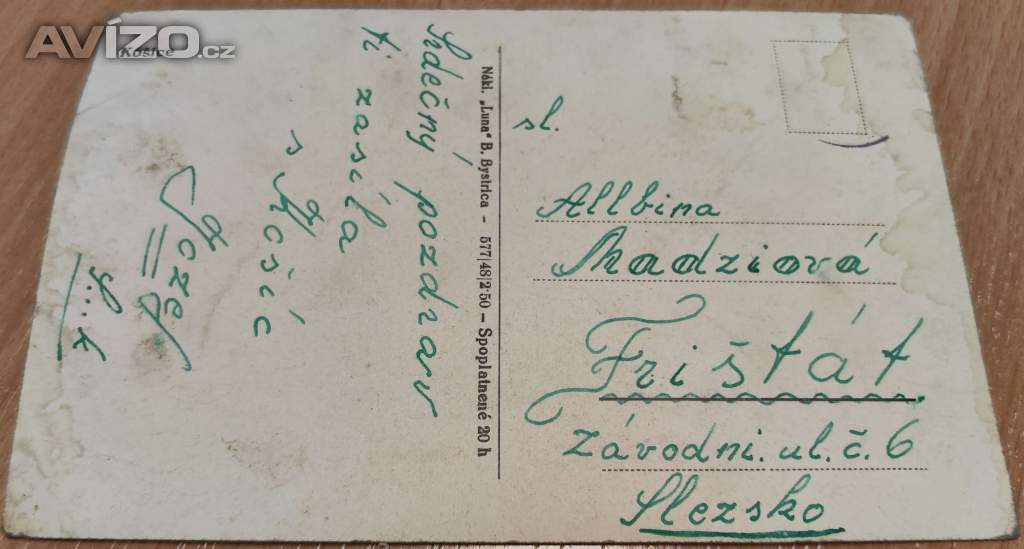 AVÍZO.cz
Košice
Srdečný pozdrav
ti zasíla
s Košíc
Jozef
S...k
Nákl. „Luna" B. Bystrica – 577|48|2·50 – Spoplatnené 20 h
sl.
Allbina
Madziová
Frištát
závodni. ul. č. 6
Slezsko